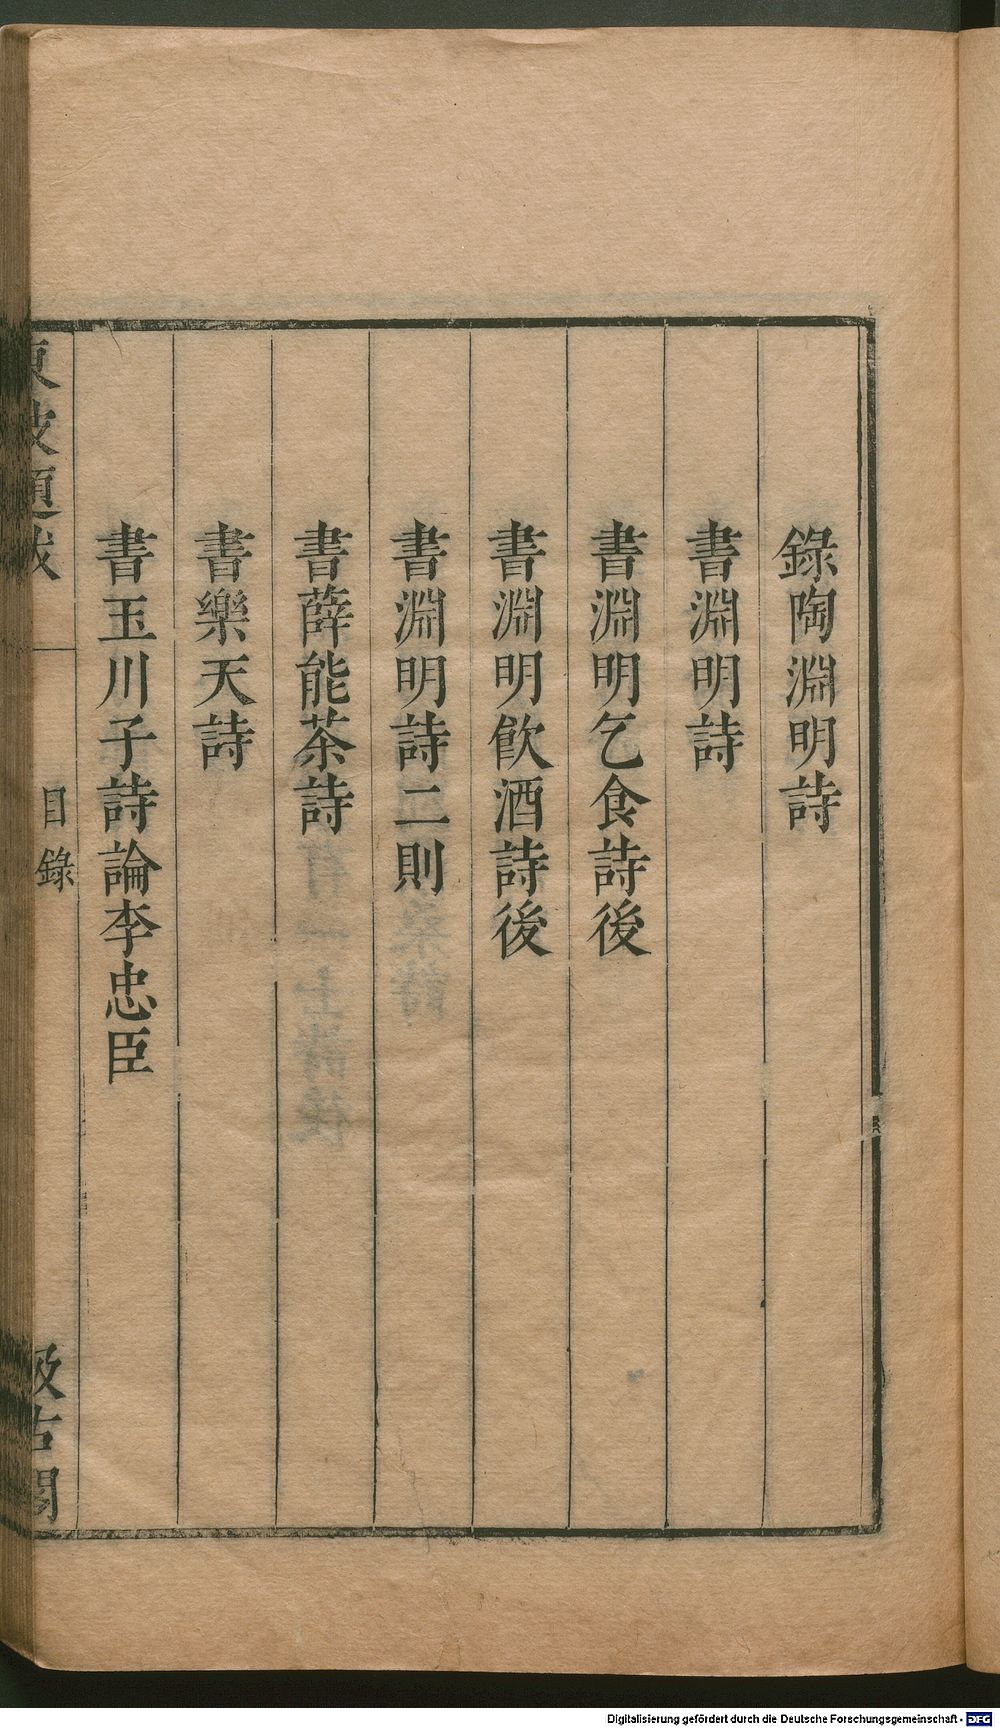 錄陶淵明詩
書淵明詩
書淵明乞食詩後
書淵明飮酒詩後
書淵明詩二則
書薛能茶詩
書樂天詩
書玉川子詩論李忠臣
東坡題跋
目錄
汲古閣
Digitalisierung gefördert durch die Deutsche Forschungsgemeinschaft - DFG